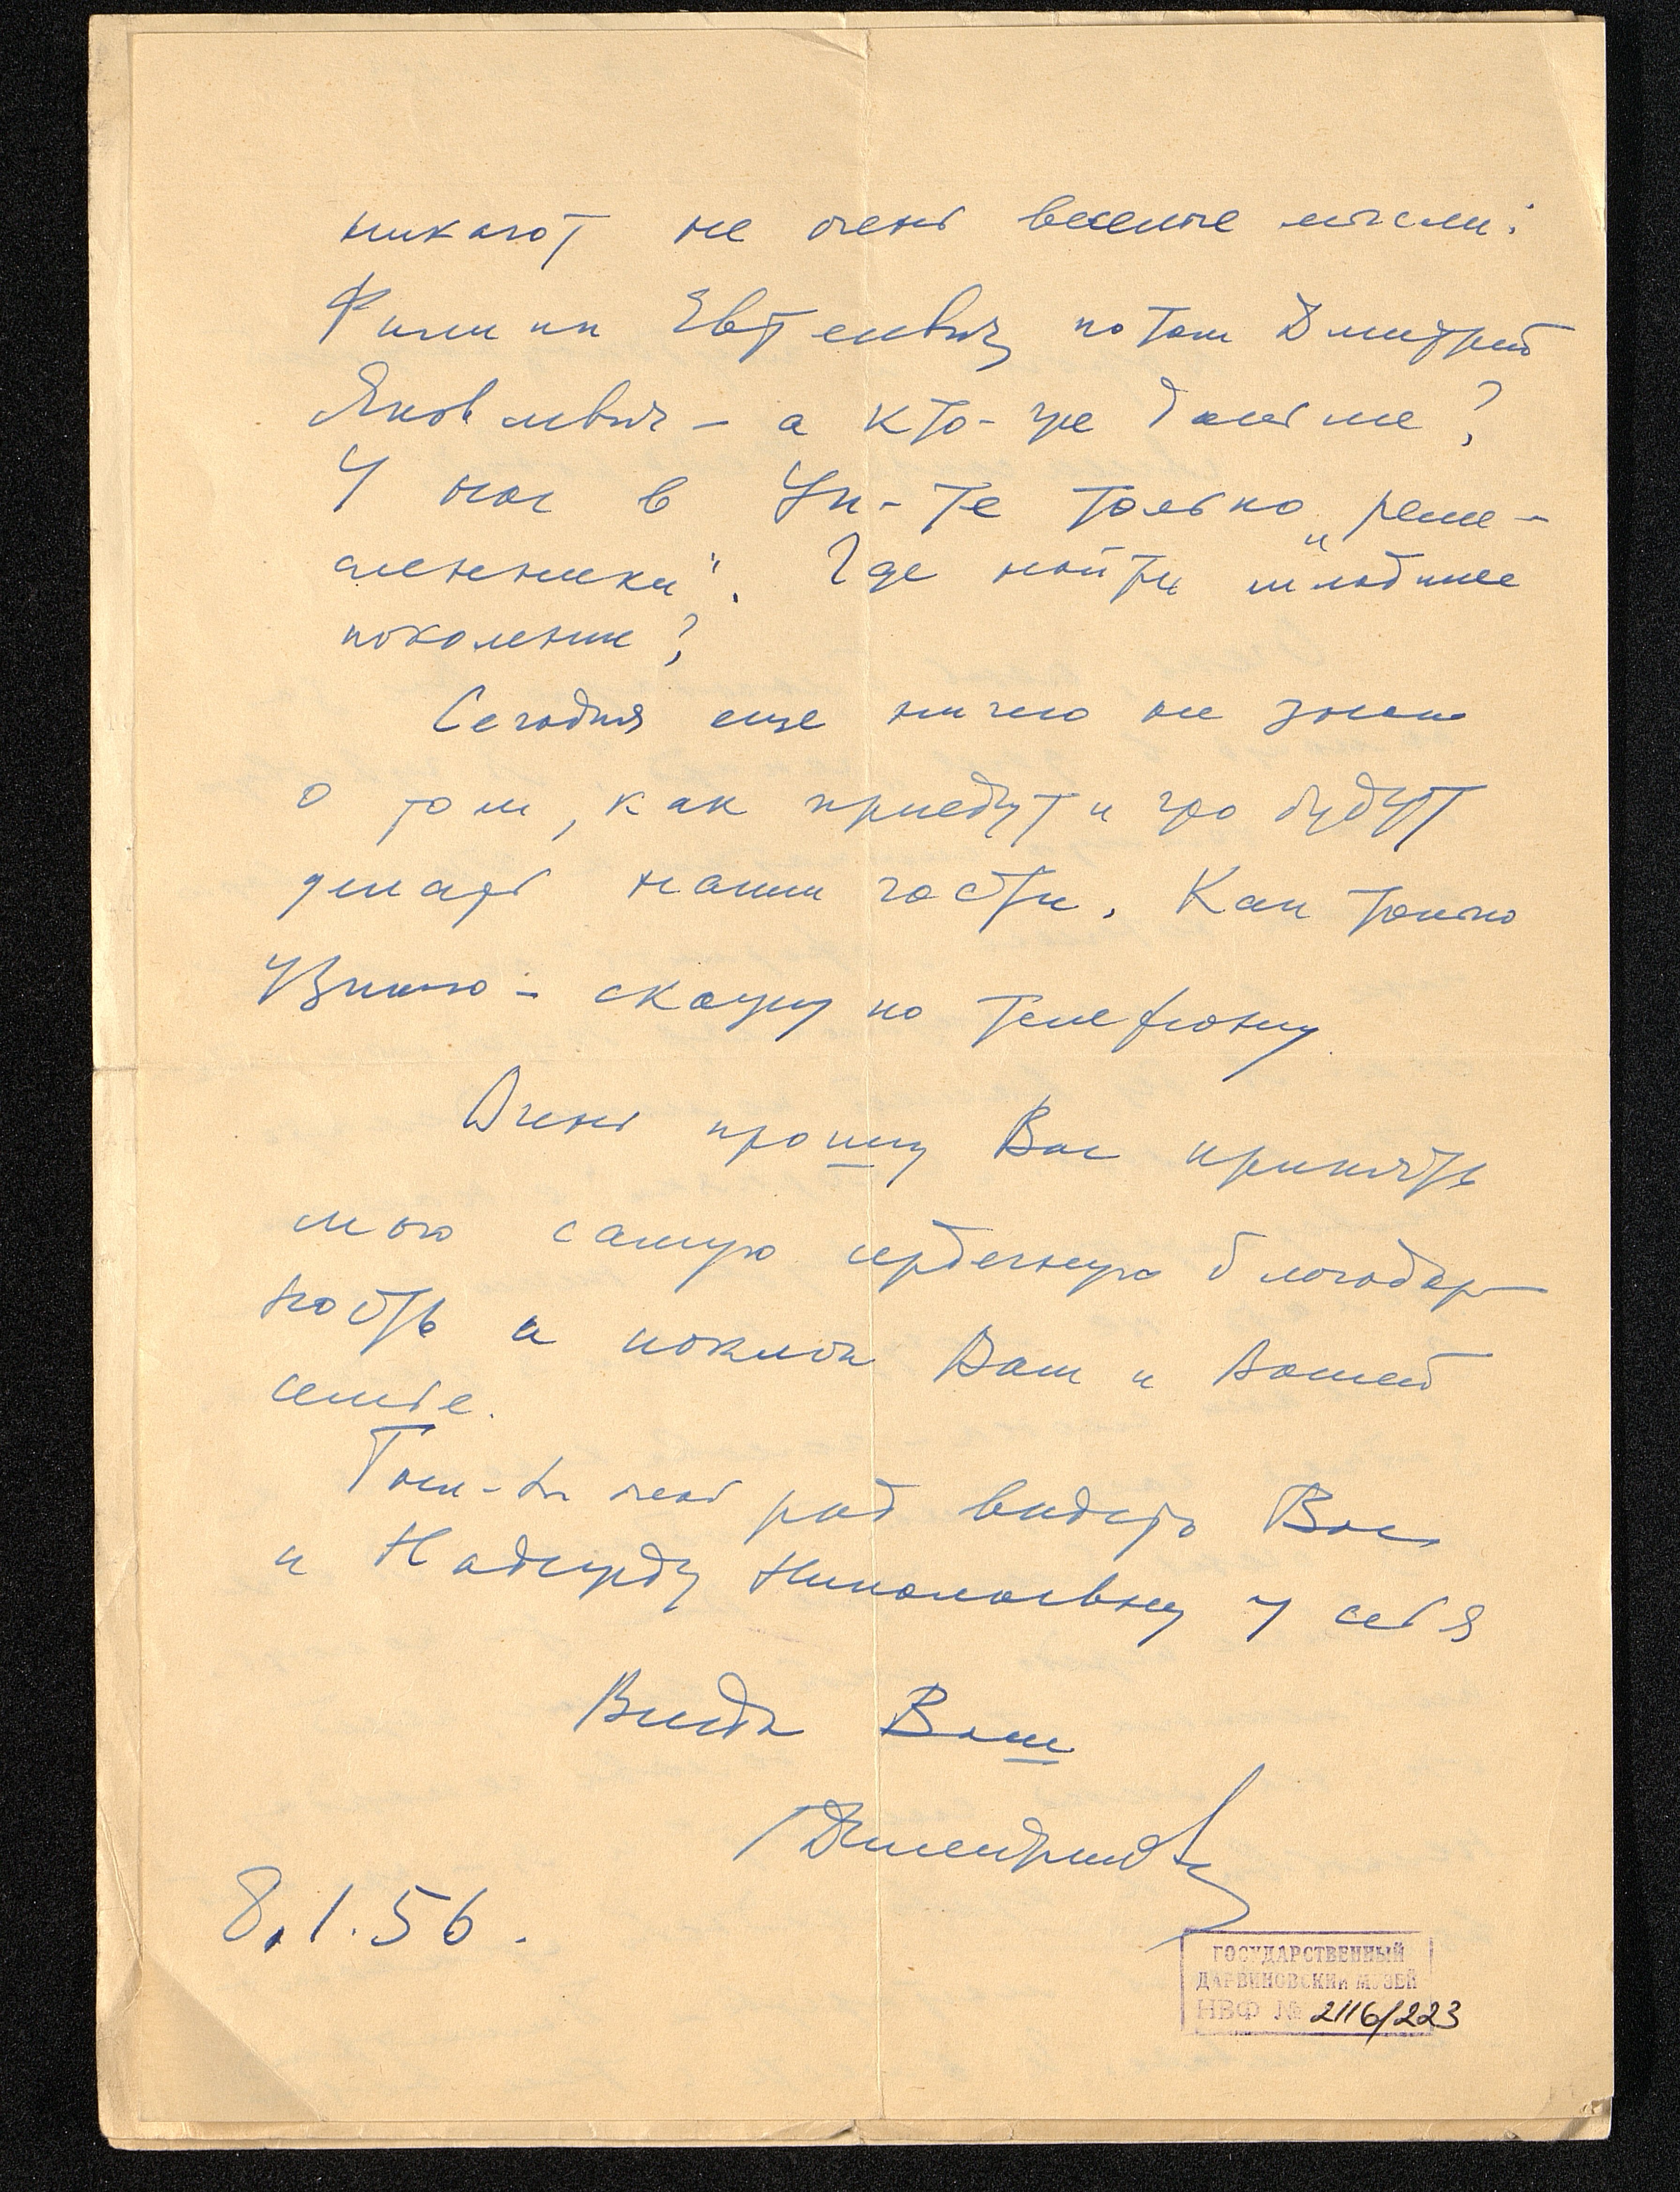 никают не очень веселые мысли:
Филипп Евтеевич, потом Дмитрий
Яковлевич – а кто-же дальше?
У нас в Ин-те только „реме-
сленники“. Где найти младшее
поколение?
Сегодня еще ничего не знаю
о том, как приедут и что будут
делать наши гости. Как только
узнаю – скажу по телефону.
Очень прошу Вас принять
мою самую сердечную благодар-
ность и поклон Вам и Вашей
семье.
Был-бы очень рад видеть Вас
и Надежду Николаевну у себя
Всегда Ваш
8.1.56.
ГОСУДАРСТВЕННЫЙ
ДАРВИНОВСКИЙ МУЗЕЙ
НВФ № 2116/223